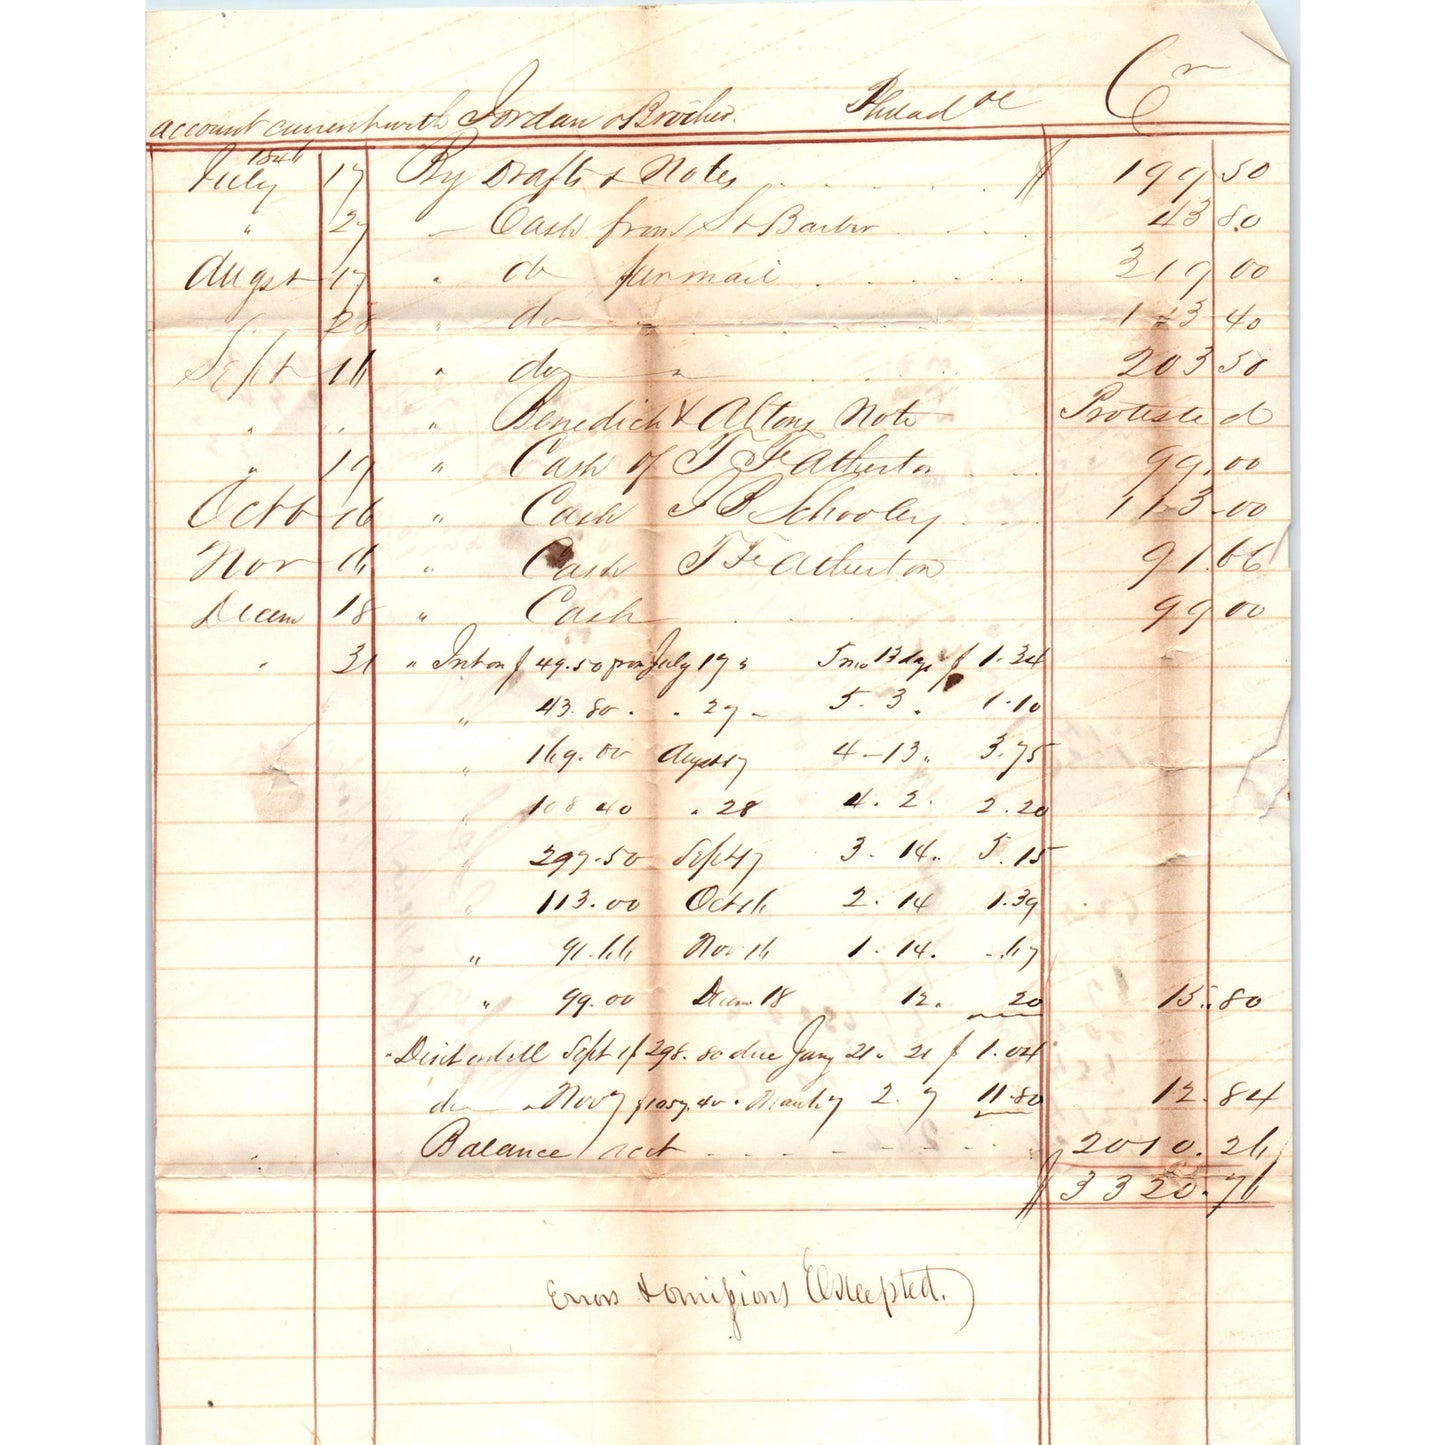 account current with Jordan & Brother. Philad Cr
July 1846 17 By Drafts & Notes $ 199 50
" 27 " Cash from St Barbor 43 80
Augst 17 " do per mail 319 00
" 28 " do 113 40
Sept 16 " do " 203 50
" " " Benedict & Altons Note Protested
" 19 " Cash of T F Atherton 99.00
Octo 16 " Cash J B Schooley 113.00
Nov 16 " Cash T F Atherton 91.66
Decem 18 " Cash 99 00
" 31 " Int on $ 49.50 from July 17 " 5 mo 13 days $ 1.34
" 43.80 " 27 " 5. 3 " 1.10
" 169.00 Augst 17 4-13 " 3.75
" 108 40 " 28 4. 2. 2.20
" 297.50 Sept 17 3. 14 " 5.15
" 113.00 Oct 16 2. 14 1.39
" 91.66 Nov 16 1. 14. .67
" 99.00 Decem 18 12. 20 15.80
" Disct on bill Sept 1 $ 298.80 due Jany 21 " 21 $ 1.04
do " Nov 7 $1057.40 " March 7 2. 7 11.80 12.84
Balance acct 2010.26
$ 3320.76
Errors & omissions Excepted.